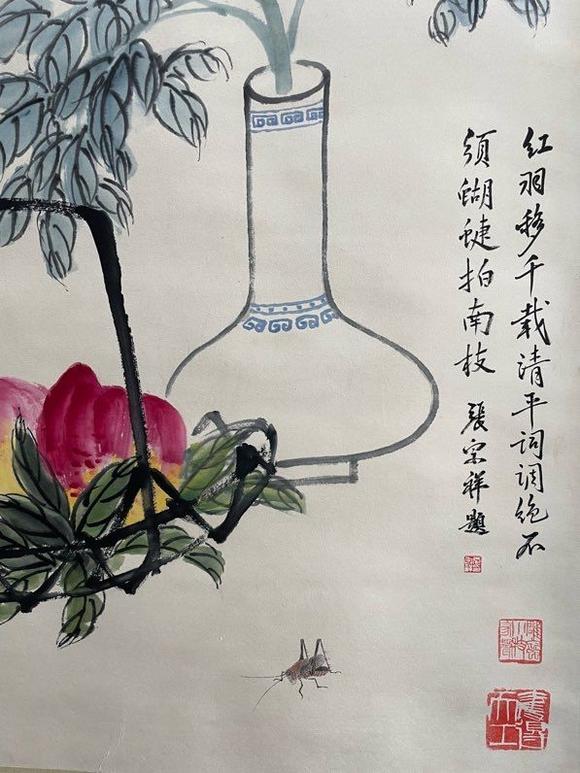 红羽移千载清平词调绝不
须蝴蝶拍南枝
張宗祥題